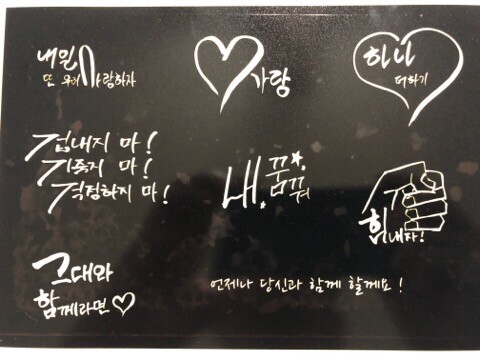 내일
또 우리 사랑하자
사랑
하나
더하기
겁내지 마!
기죽지 마!
걱정하지 마!
내 꿈
꿈꿔
힘내자!
그대와
함께라면
언제나 당신과 함께 할께요!